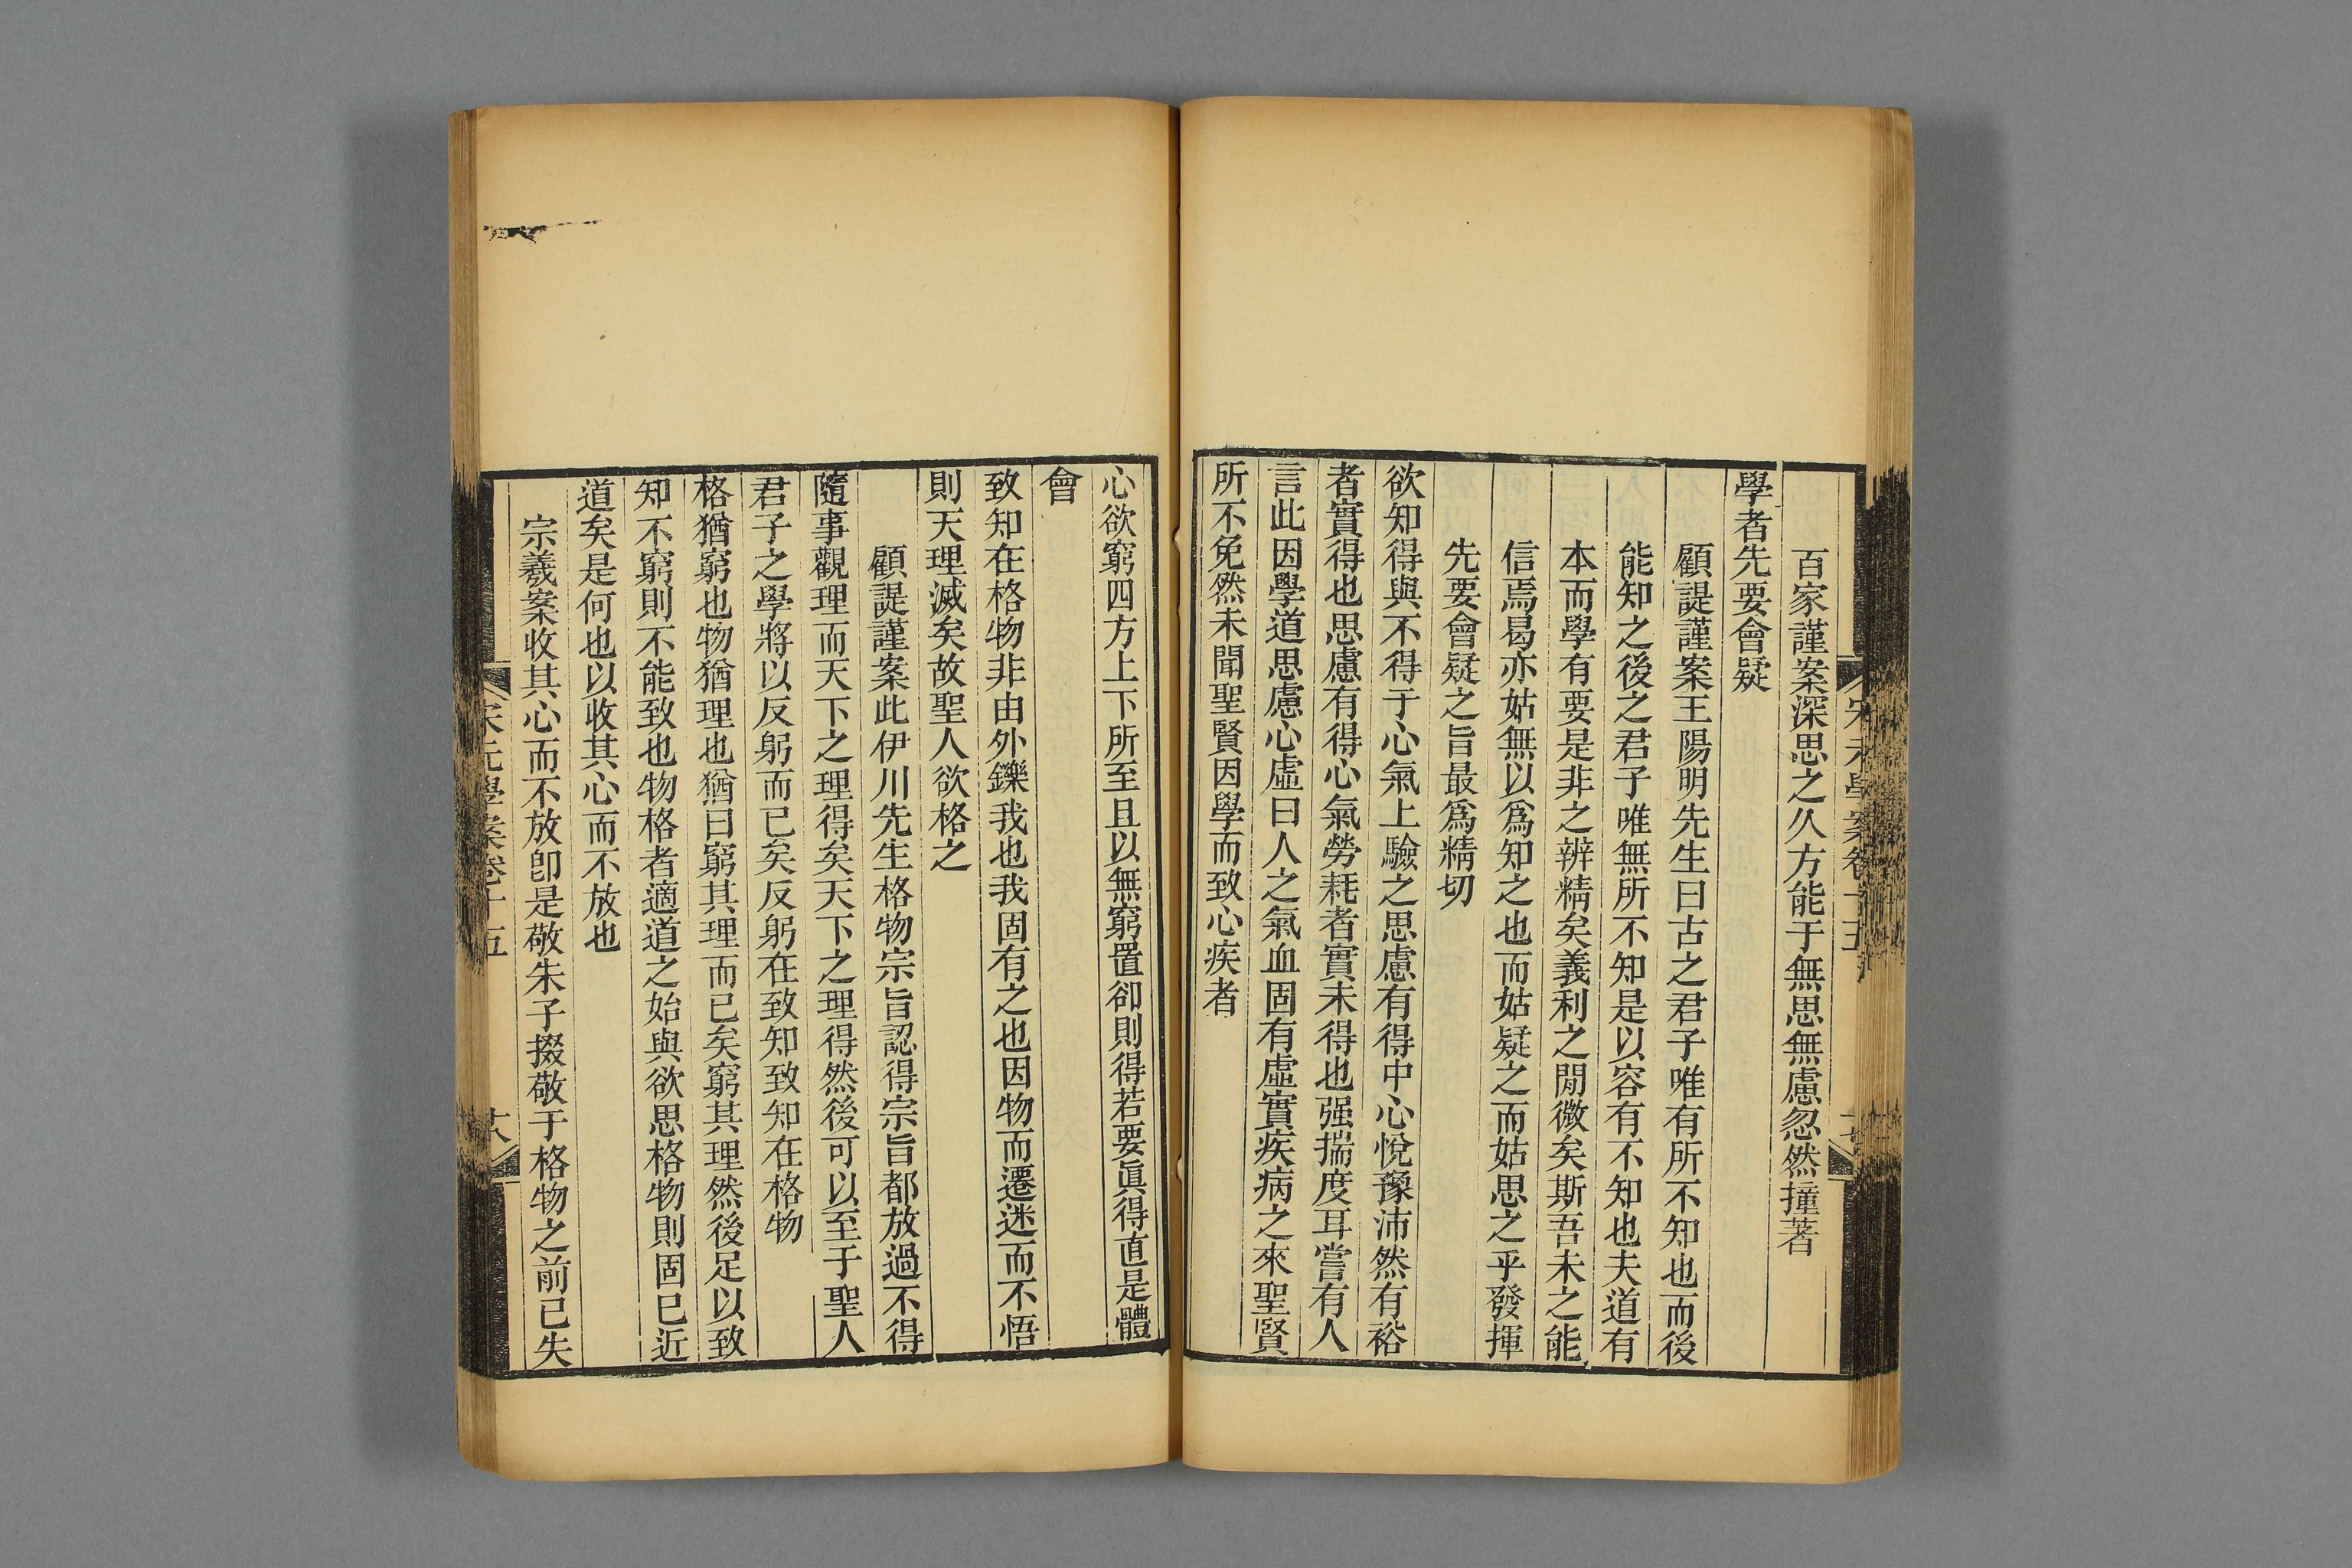 百家謹案深思之久方能于無思無慮忽然撞著
學者先要會疑
顧諟謹案王陽明先生曰古之君子唯有所不知也而後
能知之後之君子唯無所不知是以容有不知也夫道有
本而學有要是非之辨精矣義利之閒微矣斯吾未之能
信焉曷亦姑無以爲知之也而姑疑之而姑思之乎發揮
先要會疑之旨最爲精切
欲知得與不得于心氣上驗之思慮有得中心悅豫沛然有裕
者實得也思慮有得心氣勞耗者實未得也强揣度耳嘗有人
言此因學道思慮心虛曰人之氣血固有虛實疾病之來聖賢
所不免然未聞聖賢因學而致心疾者
心欲窮四方上下所至且以無窮置卻則得若要眞得直是體
會
致知在格物非由外鑠我也我固有之也因物而遷迷而不悟
則天理滅矣故聖人欲格之
顧諟謹案此伊川先生格物宗旨認得宗旨都放過不得
隨事觀理而天下之理得矣天下之理得然後可以至于聖人
君子之學將以反躬而已矣反躬在致知致知在格物
格猶窮也物猶理也猶曰窮其理而已矣窮其理然後足以致
知不窮則不能致也物格者適道之始與欲思格物則固已近
道矣是何也以收其心而不放也
宗羲案收其心而不放卽是敬朱子掇敬于格物之前已失
宋元學案卷十五